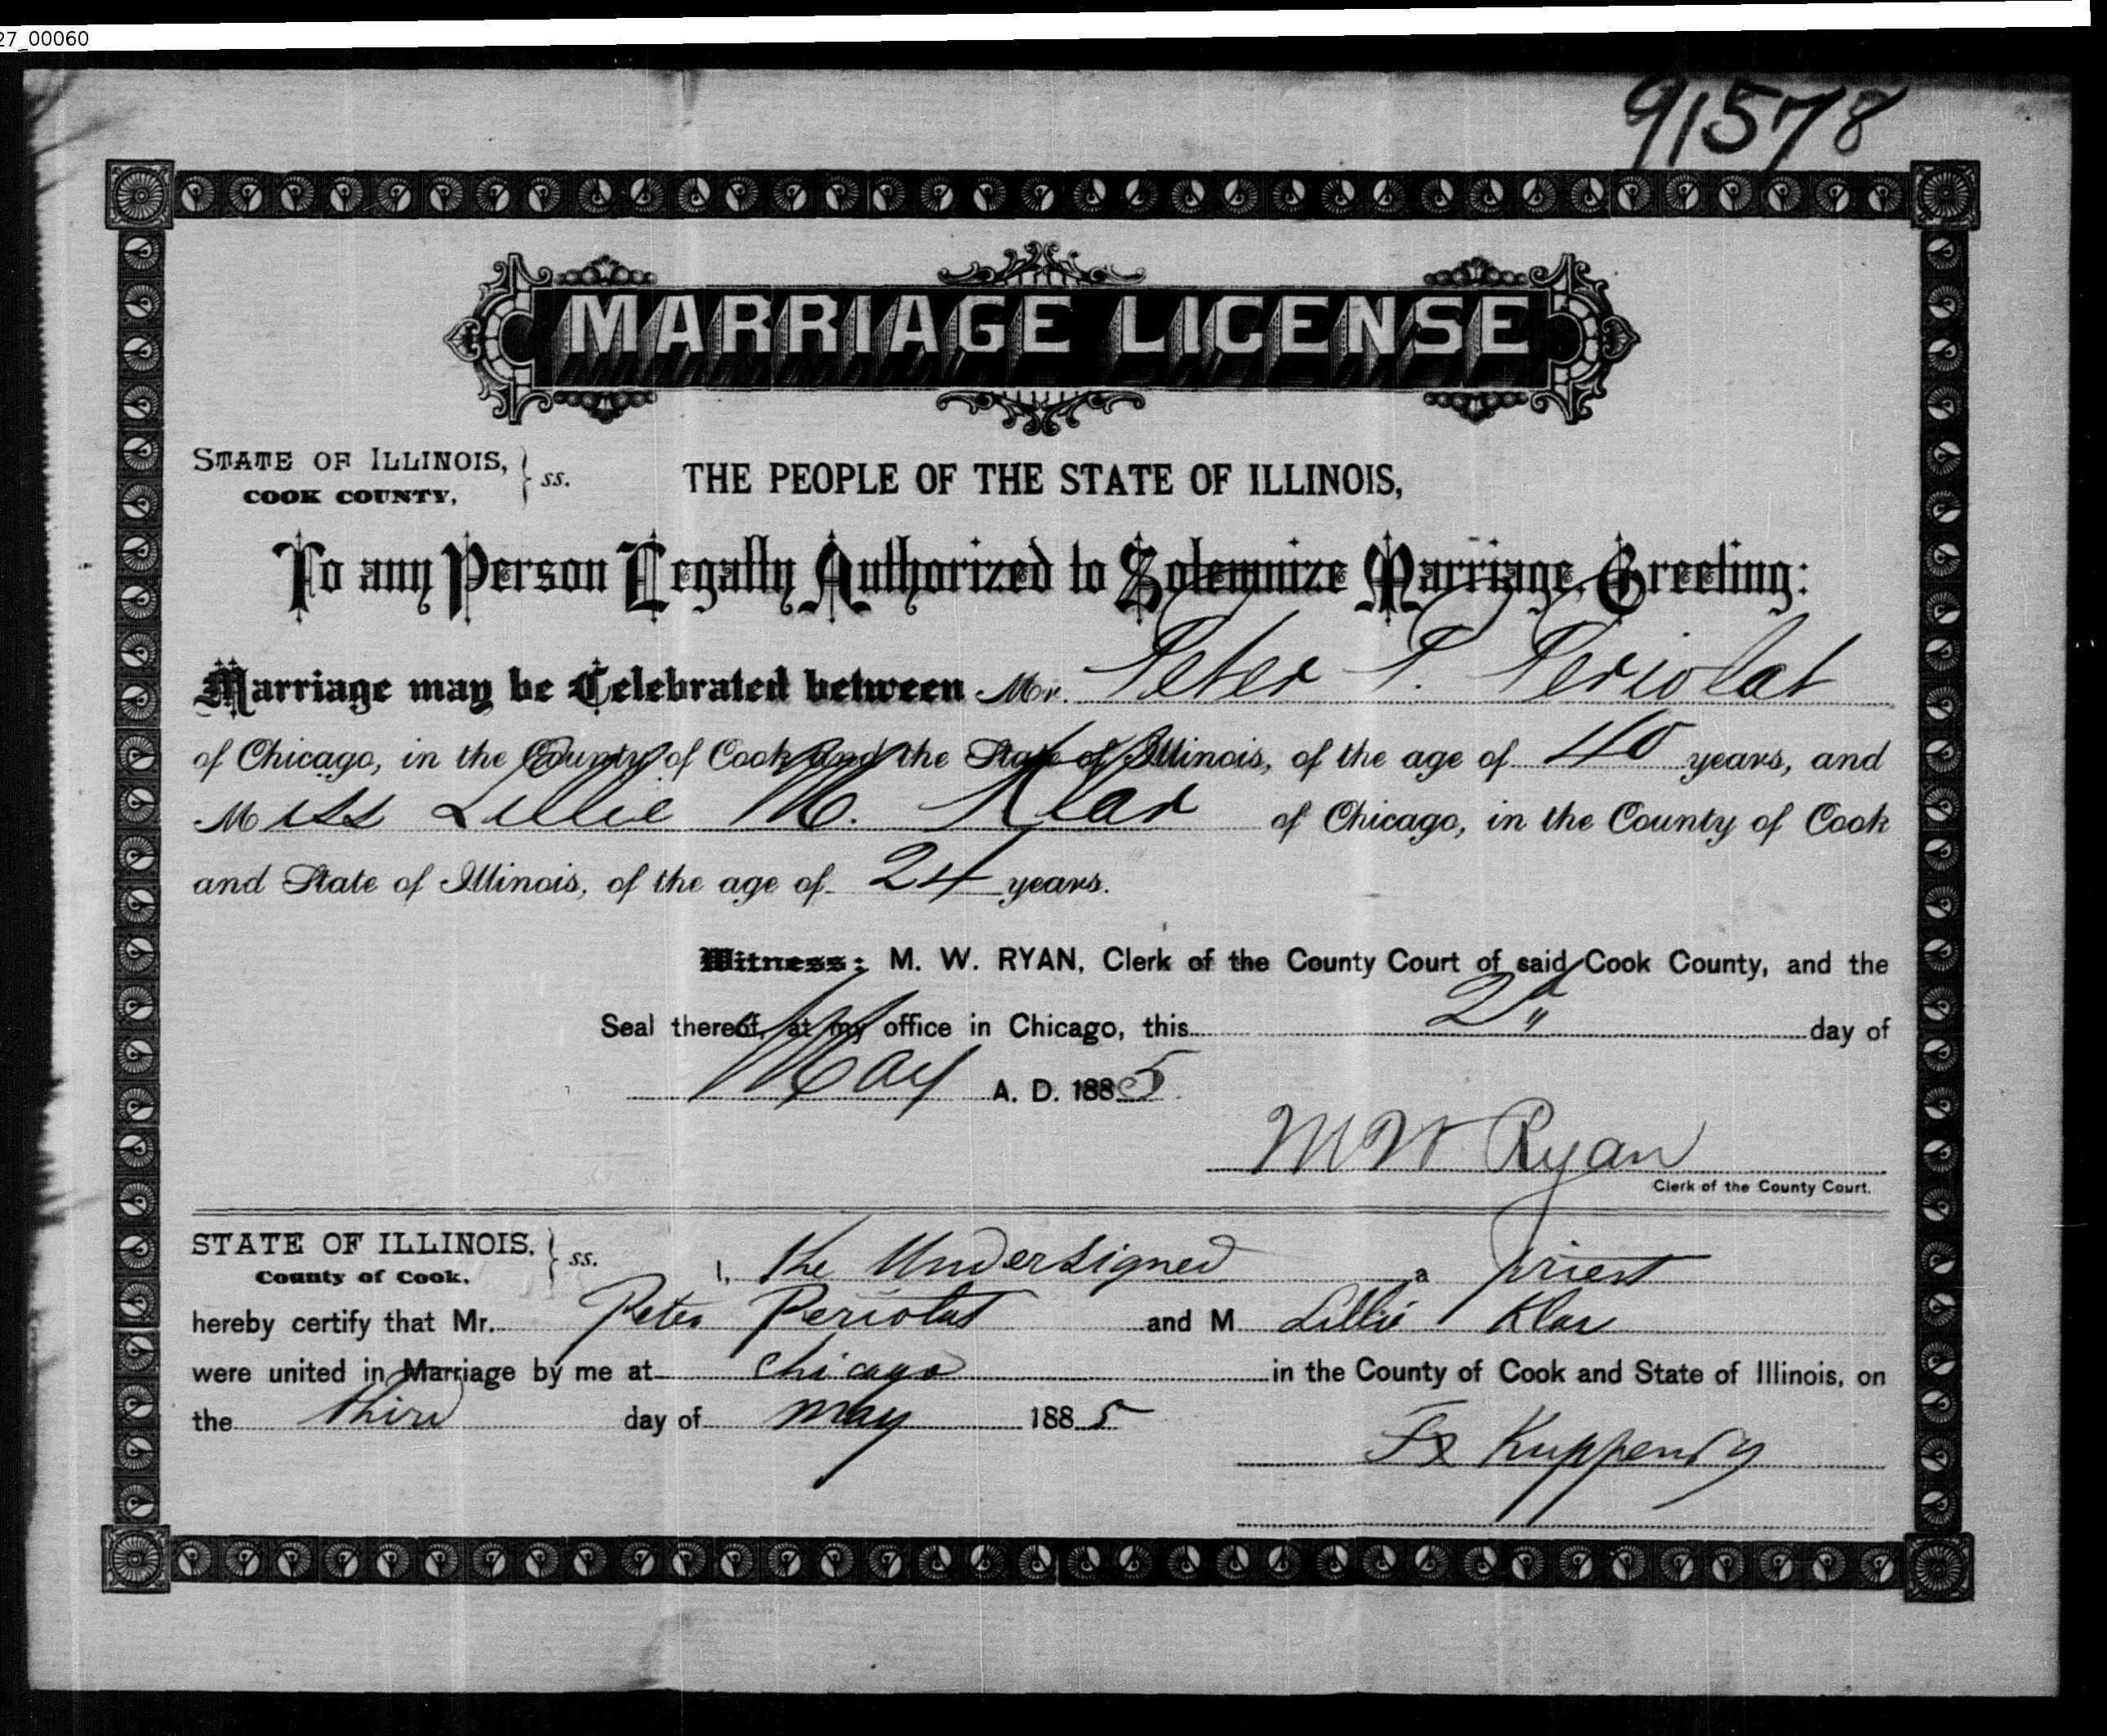 27_00060
91578
MARRIAGE LICENSE
STATE OF ILLINOIS, } ss.
COOK COUNTY,
THE PEOPLE OF THE STATE OF ILLINOIS,
To any Person Legally Authorized to Solemnize Marriage, Greeting:
Marriage may be Celebrated between Mr. Peter P. Periolat
of Chicago, in the County of Cook and the State of Illinois, of the age of 40 years, and
Miss Lillie M. Klar of Chicago, in the County of Cook
and State of Illinois, of the age of 24 years.
Witness: M. W. RYAN, Clerk of the County Court of said Cook County, and the
Seal thereof, at my office in Chicago, this 2d day of
May A. D. 1885
M W Ryan
Clerk of the County Court.
STATE OF ILLINOIS, } ss.
County of Cook.
I, the Undersigned a priest
hereby certify that Mr. Peter Periolat and M Lillie Klar
were united in Marriage by me at Chicago in the County of Cook and State of Illinois, on
the third day of may 1885